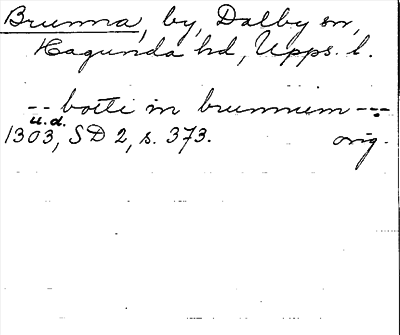 Brunna, by, Dalby sn,
Hagunda hd, Upps. l.
-- botte in brunnum ---
u.d.
1303, SD 2, s. 373. orig.